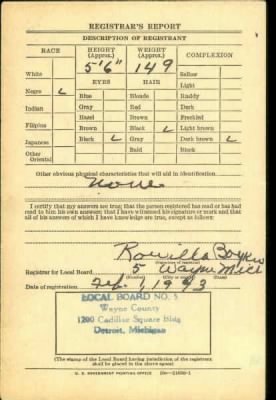 REGISTRAR'S REPORT
DESCRIPTION OF REGISTRANT
RACE HEIGHT (Approx.) WEIGHT (Approx.) COMPLEXION
5'6" 149
White Sallow
EYES HAIR Light
Negro ✓ Blue Blonde Ruddy
Gray Red Dark
Indian Hazel Brown Freckled
Filipino Brown Black ✓ Light brown
Japanese Black ✓ Gray Dark brown ✓
Other Oriental Bald Black
Other obvious physical characteristics that will aid in identification
None
I certify that my answers are true; that the person registered has read or has had read to him his own answers; that I have witnessed his signature or mark and that all of his answers of which I have knowledge are true, except as follows:
(Signature of registrar)
Registrar for Local Board 5 Wayne Mich
(Number) (City or county) (State)
Date of registration 1, 1943
LOCAL BOARD NO. 5
Wayne County
1200 Cadillac Square Bldg
Detroit, Michigan
(The stamp of the Local Board having jurisdiction of the registrant shall be placed in the above space)
U. S. GOVERNMENT PRINTING OFFICE 16—21630-1